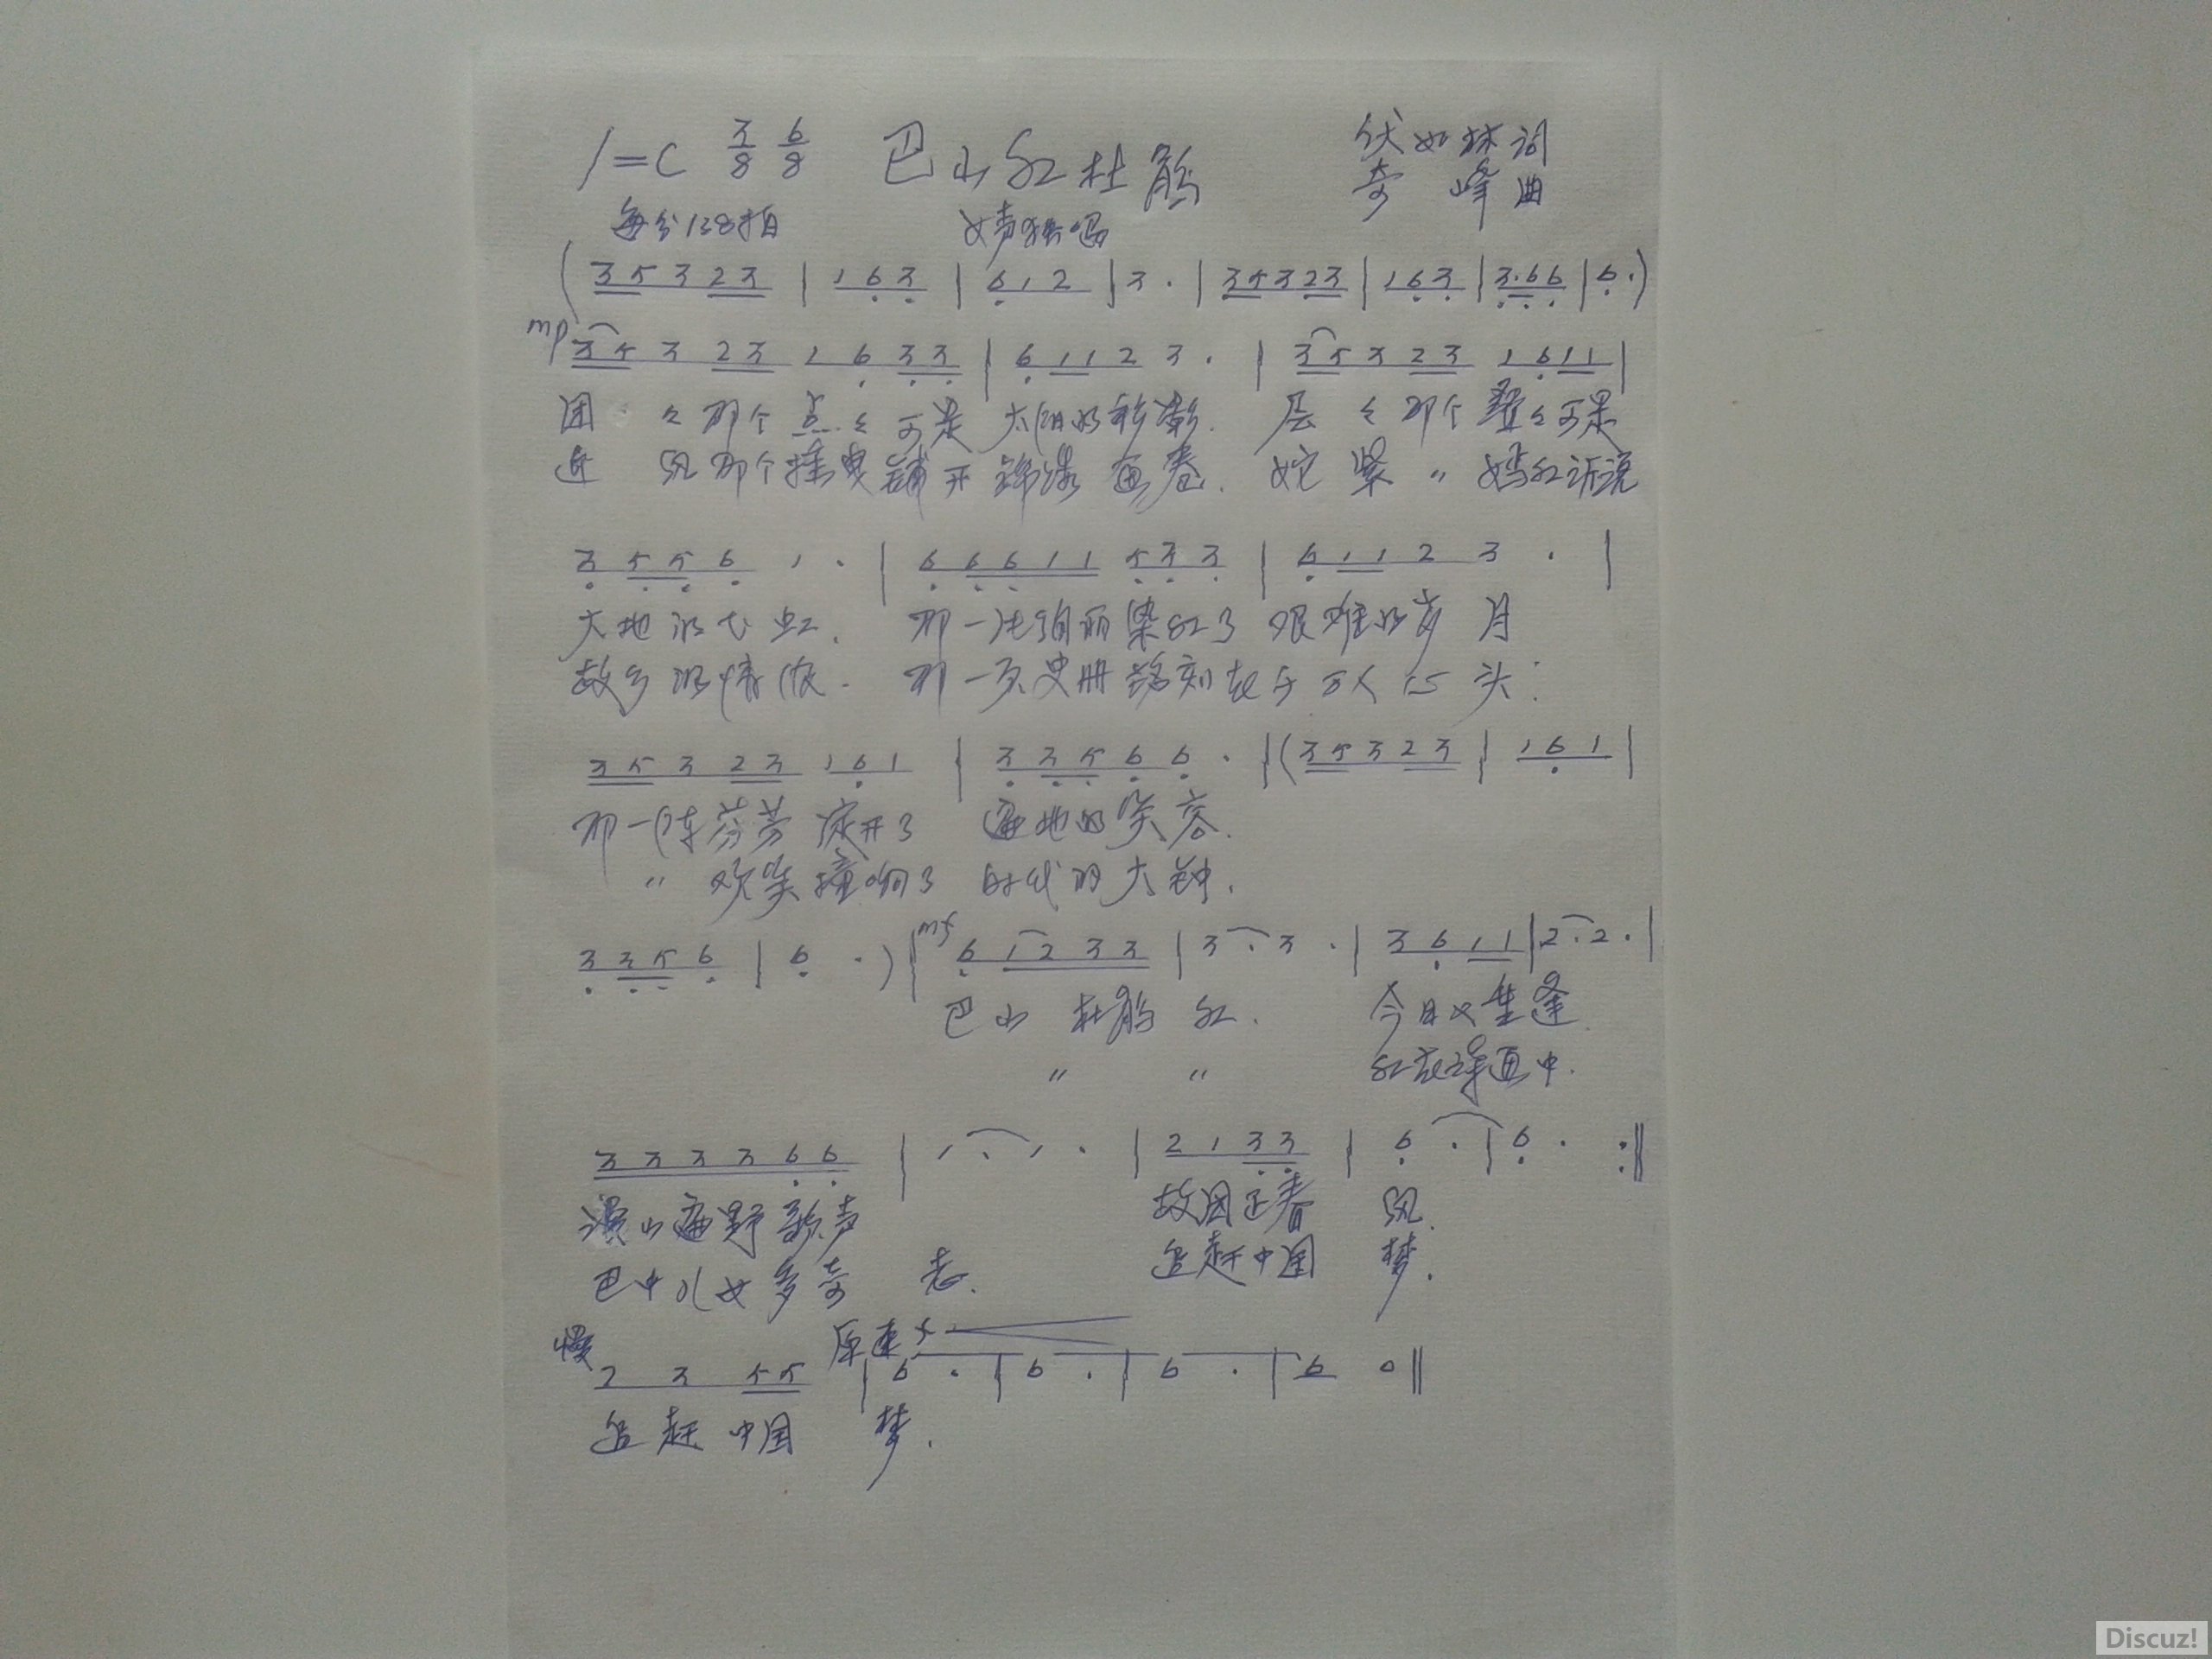 1=C 3/8 6/8 巴山红杜鹃 伏如林词
奇峰曲
每分138拍 女声独唱
(3 5 3 2 3 | 1 6 3 | 6 1 2 | 3 · | 3 5 3 2 3 | 1 6 3 | 3 · 6 6 | 6 ·)
mp 3 5 3 2 3 1 6 3 3 | 6 1 1 2 3 · | 3 5 3 2 3 1 6 1 1 |
团 々那个点々可是 太阳的彩影. 层々那个叠々可是
迎 风那个摇曳铺开锦绣画卷. 姹紫 〃 嫣红诉说
3 5 5 6 1 · | 6 6 6 1 1 5 3 3 | 6 1 1 2 3 · |
大地的飞虹. 那一片绚丽染红了 艰难的岁月
故乡的情浓. 那一页史册铭刻在千万人心头:
3 5 3 2 3 1 6 1 | 3 3 5 6 6 · | (3 5 3 2 3 | 1 6 1 |
那一阵芬芳 绽开了 遍地的笑容.
〃 欢笑撞响了 时代的大钟.
3 3 5 6 | 6 ·) | mf 6 1 2 3 3 | 3 · 3 · | 3 6 1 1 | 2 · 2 · |
巴山 杜鹃 红. 今日又重逢
〃 〃 红在画中.
3 3 3 3 6 6 | 1 · 1 · | 2 1 3 3 | 6 · | 6 · :||
漫山遍野歌声 故园正春 风.
巴中儿女多奇 志. 追赶中国 梦.
慢 2 3 5 5 原速 f | 6 · | 6 · | 6 · | 6 0 ||
追赶中国 梦.
Discuz!